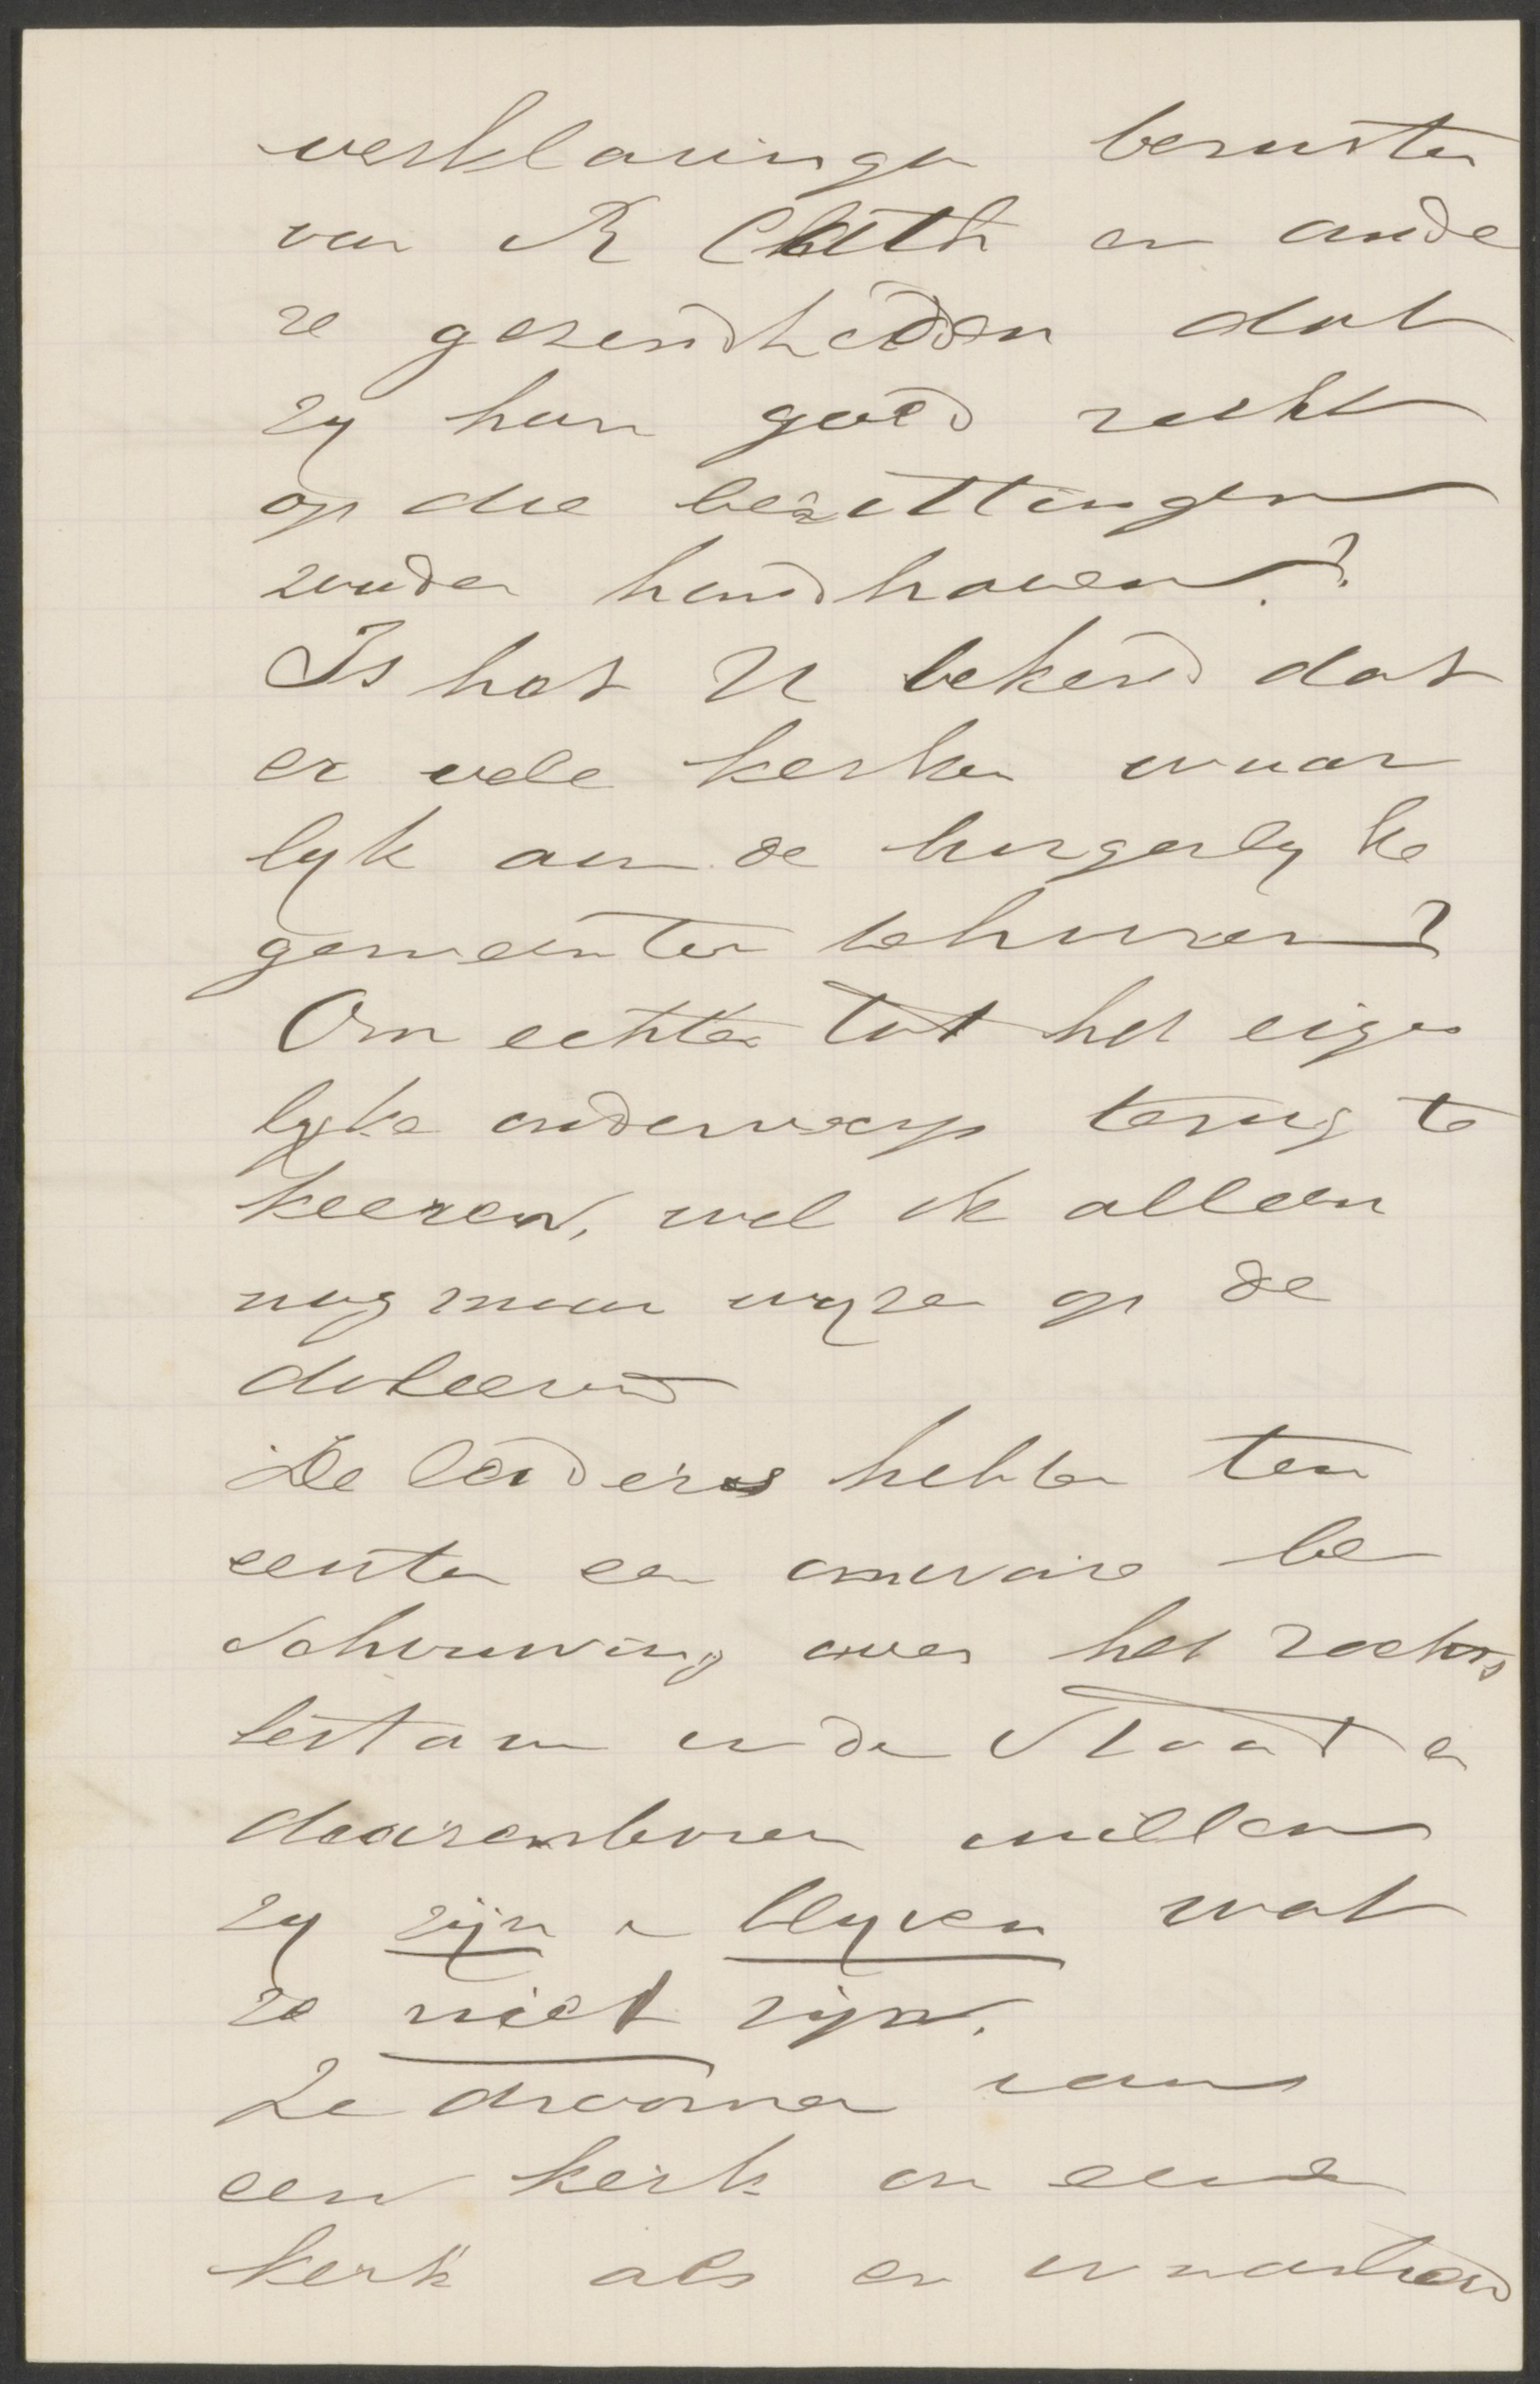 verklaringen berusten
van R Cath en ande
re gezindheden dat
zy hun goed recht
op die bezittingen
zouden handhaven?
Is het U bekend dat
er vele kerken waar
lyk aan de burgerlyke
gemeenten behooren?
Om echter tot het eigen
lyke onderwerp terug te
keeren, wil ik alleen
nog maar wyzen op de
doleerend
De leiders hebben ten
eersten een onware be
schouwing over het rechts
bestaan in de Staat en
daarenboven willen
zy zijn en blyven wat
ze niet zijn.
Ze droomen van
een kerk en eene
kerk als er